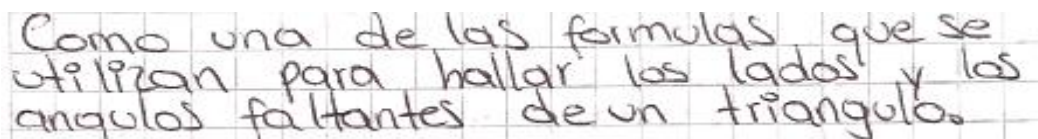 Como una de las formulas que se
utilizan para hallar los lados y los
angulos faltantes de un triangulo.